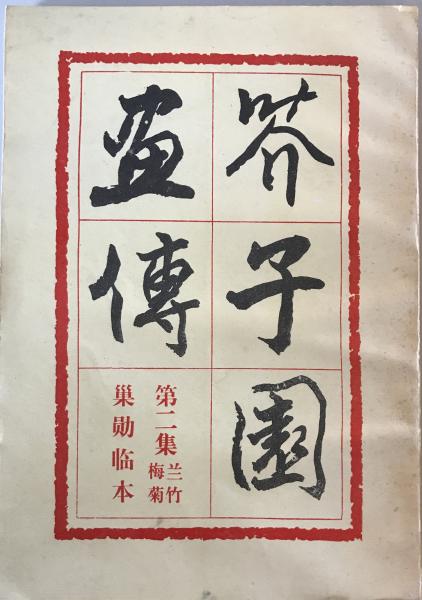 芥子園
畫傳
第二集
兰竹
梅菊
巢勋临本